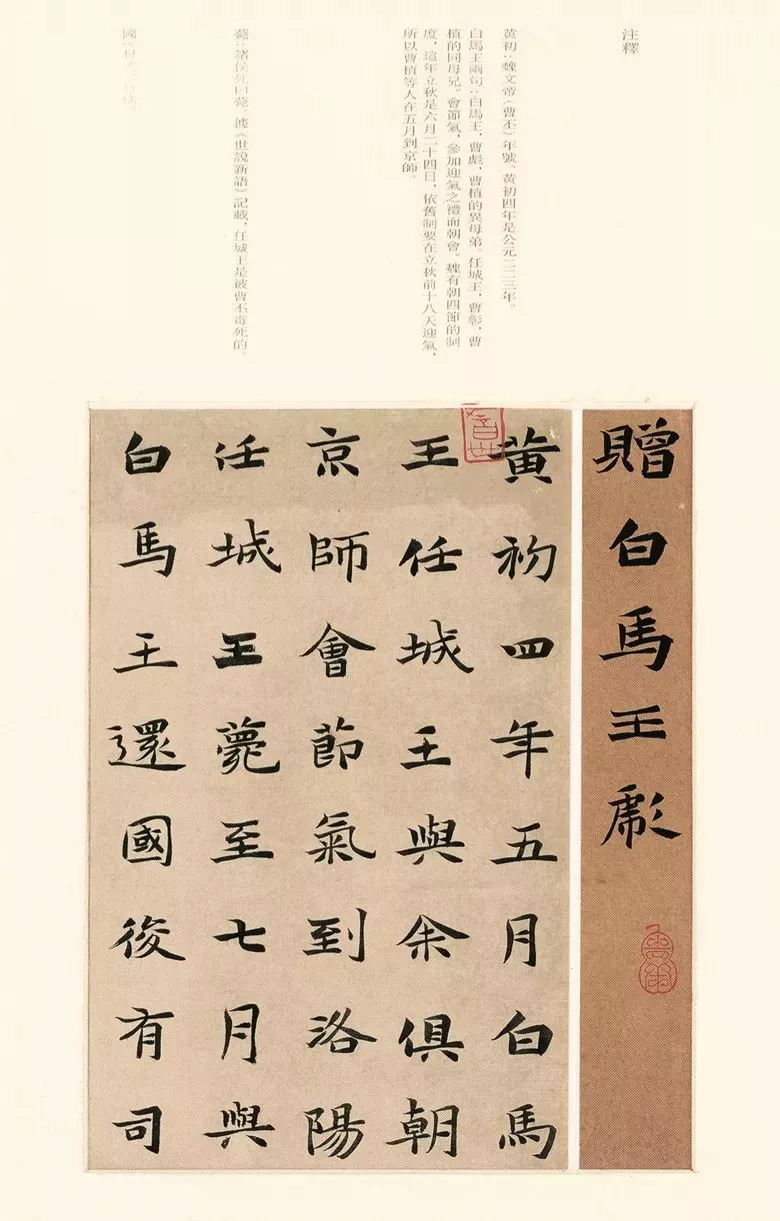 注釋
黃初：魏文帝（曹丕）年號，黃初四年是公元二二三年。
白馬王兩句：白馬王，曹彪，曹植的異母弟。任城王，曹彰，曹
植的同母兄。會節氣，參加迎氣之禮而朝會。魏有朝四節的制
度，這年立秋是六月二十四日，依舊制要在立秋前十八天迎氣，
所以曹植等人在五月到京師。
薨：諸侯死曰薨。據《世說新語》記載，任城王是被曹丕毒死的。
贈白馬王彪
黃初四年五月白馬
王任城王與余俱朝
京師會節氣到洛陽
任城王薨至七月與
白馬王還國後有司